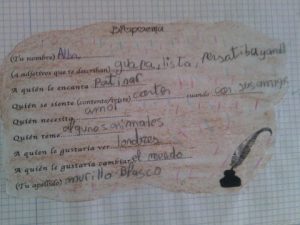 Biopoema
(Tu nombre) Alba
(4 adjetivos que te describan) guapa, lista,
A quién le encanta Patinar
Quién se siente (contento/triste) cuando con sus amigos
Quién necesita amor
Quién teme algunos animales
A quién le gustaría ver londres
A quién le gustaría cambiar el mundo
(Tu apellido) murillo Blasco